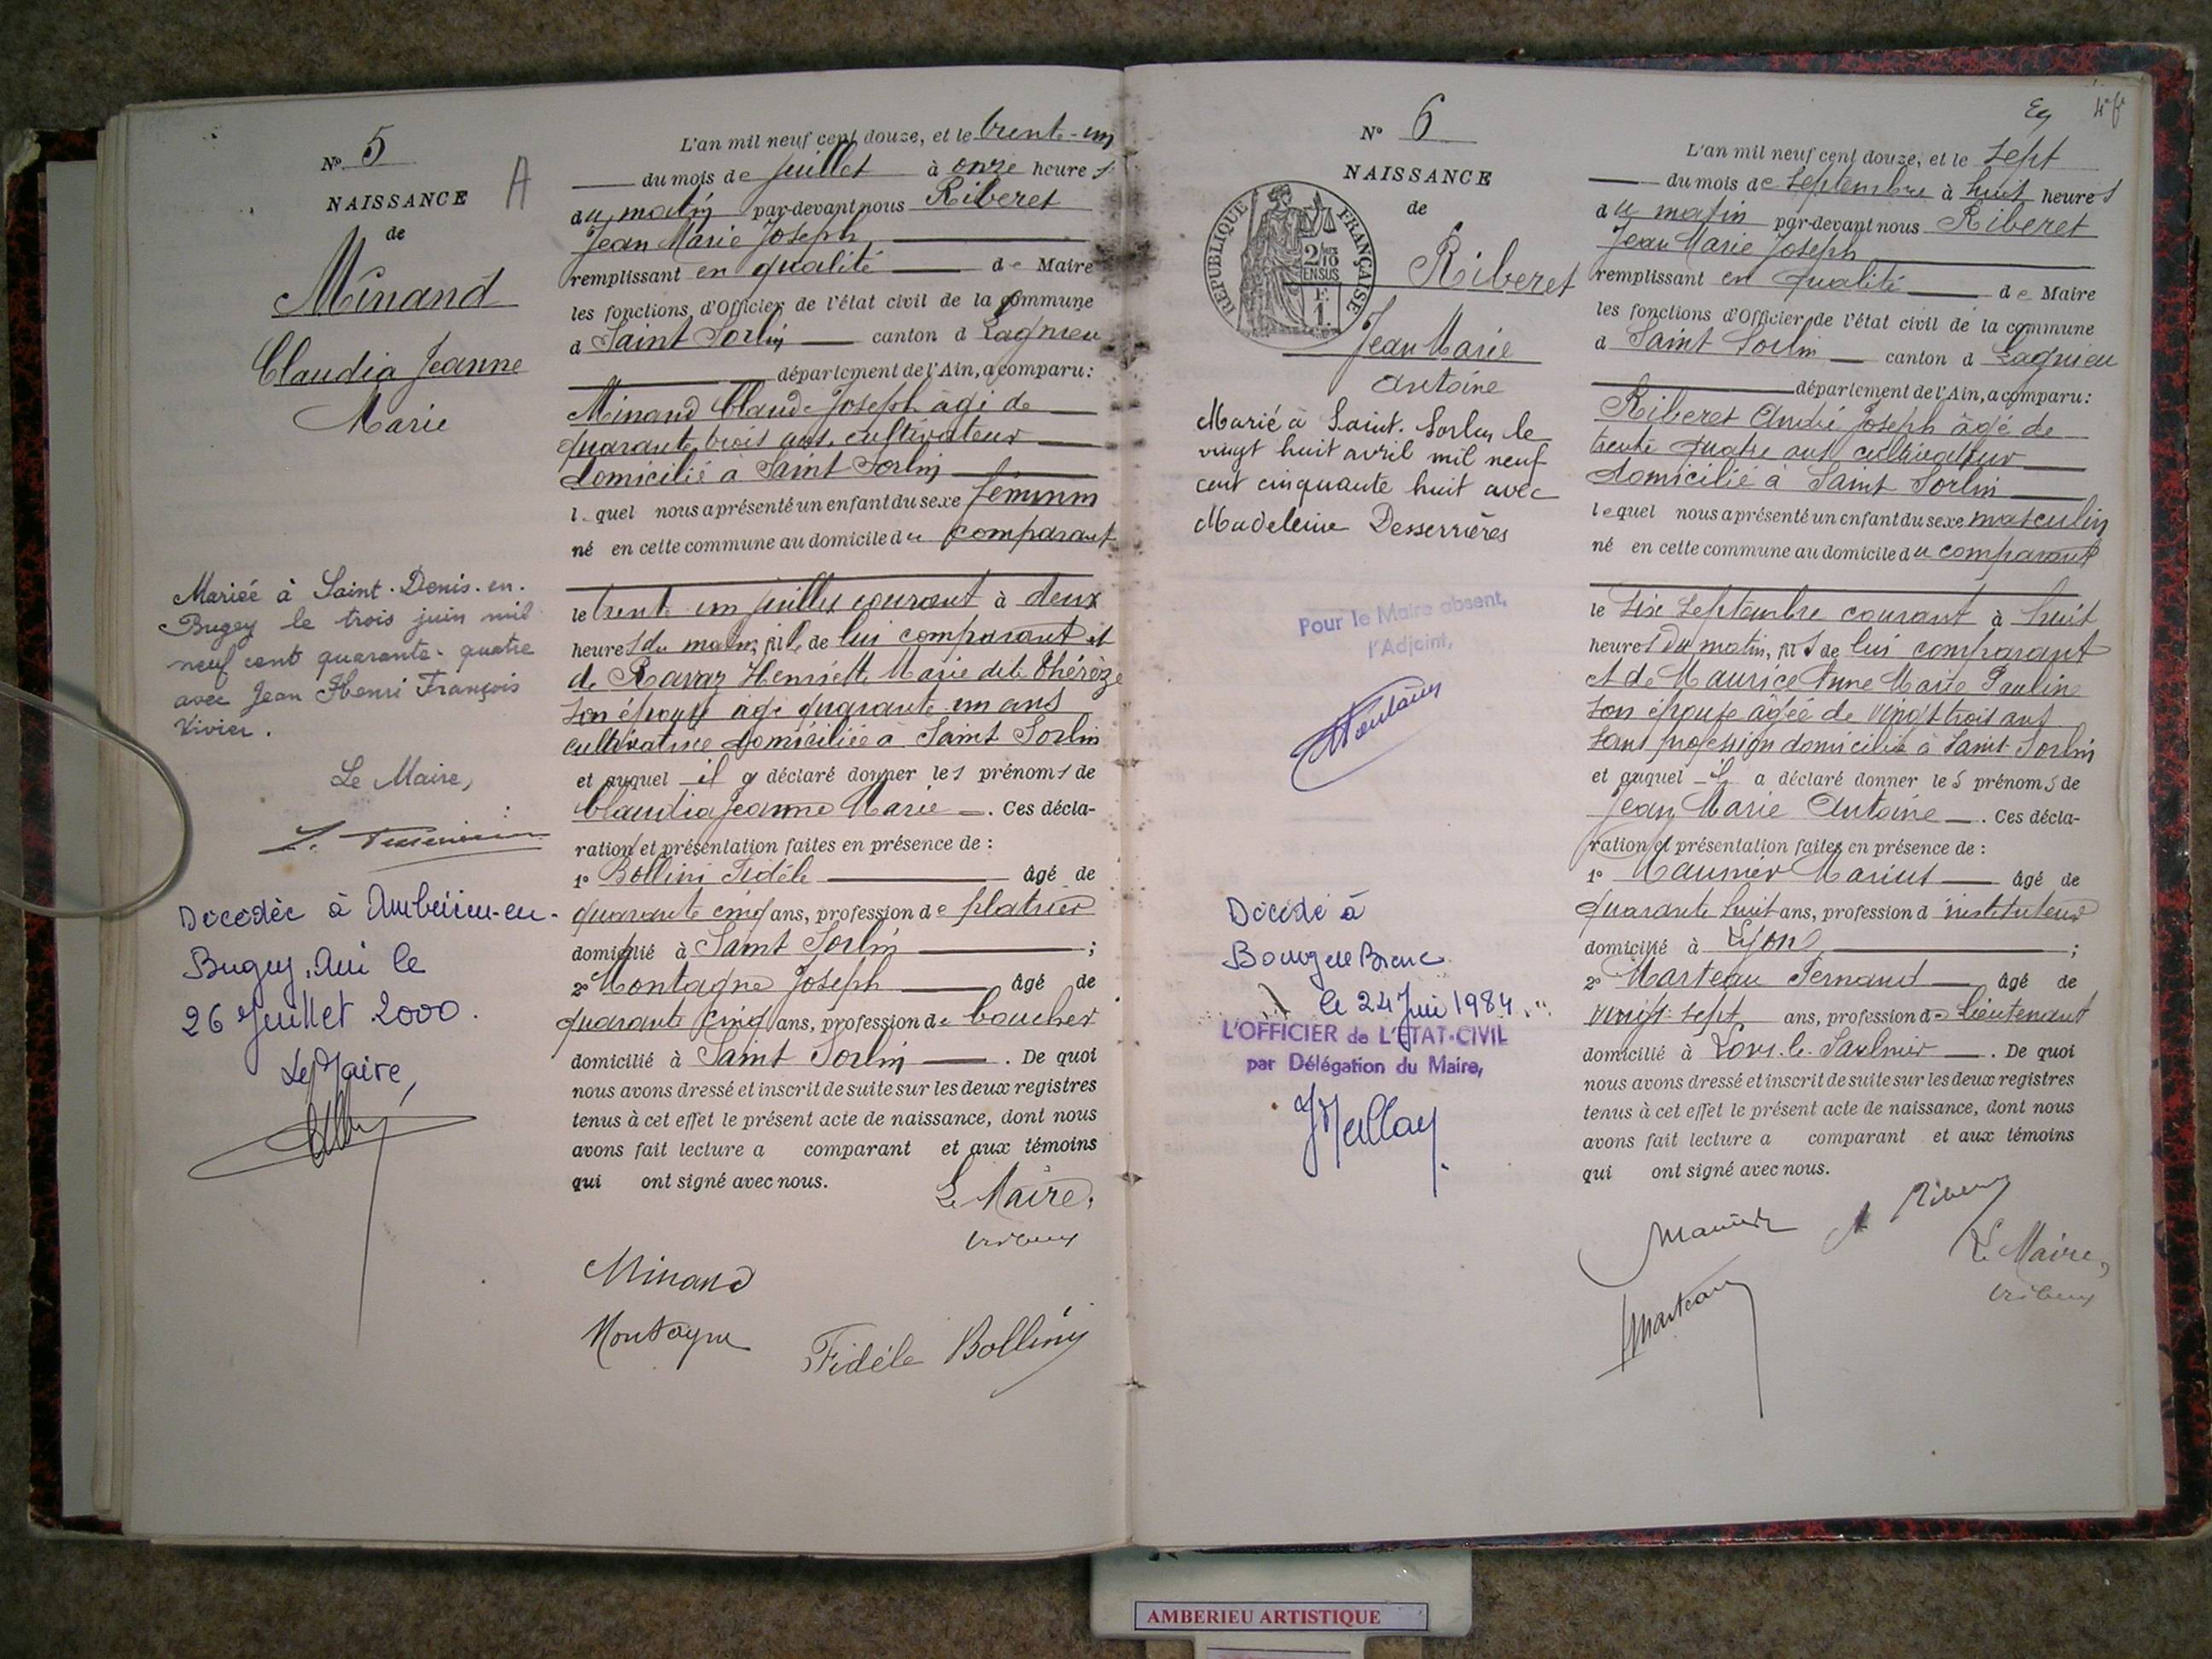 N° 5
NAISSANCE
de
Minand
Claudia Jeanne
Marie
A
Mariée à Saint-Denis-en-
Bugey le trois juin mil
neuf cent quarante-quatre
avec Jean Henri François
Vivier.
Le Maire,
Décédée à Ambérieu-en-
Bugey, Ain le
26 Juillet 2000.
Le Maire,
L'an mil neuf cent douze, et le trente-un
du mois de juillet à onze heures
du matin par-devant nous Riberet
Jean Marie Joseph
remplissant en qualité de Maire
les fonctions d'Officier de l'état civil de la commune
d Saint Sorlin canton d Lagnieu
département de l'Ain, a comparu:
Minand Claude Joseph âgé de
quarante trois ans, cultivateur
domicilié à Saint Sorlin
lequel nous a présenté un enfant du sexe féminin
né en cette commune au domicile du comparant
le trente un juillet courant à deux
heures du matin, fille de lui comparant et
de Ravaz Henriette Marie dite Thérèze
son épouse âgé quarante un ans
cultivatrice domiciliée à Saint Sorlin
et auquel il a déclaré donner les prénoms de
Claudia Jeanne Marie . Ces décla-
ration et présentation faites en présence de :
1° Bollini Fidéle âgé de
quarante cinq ans, profession de platrier
domicilié à Saint Sorlin ;
2° Montagne Joseph âgé de
quarante cinq ans, profession de boucher
domicilié à Saint Sorlin . De quoi
nous avons dressé et inscrit de suite sur les deux registres
tenus à cet effet le présent acte de naissance, dont nous
avons fait lecture a comparant et aux témoins
qui ont signé avec nous.
Le Maire,
Minand
Montagne
Fidéle Bollini
N° 6
NAISSANCE
de
REPUBLIQUE FRANÇAISE
2/10
EN SUS
Riberet
Jean Marie
Antoine
Marié à Saint-Sorlin le
vingt huit avril mil neuf
cent cinquante huit avec
Madeleine Desserrières
Pour le Maire absent,
l'Adjoint,
Décédé à
le 24 Juin 1984
L'OFFICIER de L'ETAT-CIVIL
par Délégation du Maire,
L'an mil neuf cent douze, et le sept
du mois de septembre à huit heures
du matin par-devant nous Riberet
Jean Marie Joseph
remplissant en qualité de Maire
les fonctions d'Officier de l'état civil de la commune
d Saint Sorlin canton d Lagnieu
département de l'Ain, a comparu:
Riberet André Joseph âgé de
trente quatre ans cultivateur
domicilié à Saint Sorlin
lequel nous a présenté un enfant du sexe masculin
né en cette commune au domicile du comparant
le six septembre courant à huit
heures du matin, fils de lui comparant
et de Maurice Anne Marie Pauline
son épouse âgée de vingt trois ans
sans profession domicilié à Saint Sorlin
et auquel il a déclaré donner les prénoms de
Jean Marie Antoine . Ces décla-
ration et présentation faites en présence de :
1° Maunier Marius âgé de
quarante huit ans, profession d instituteur
domicilié à Lyon ;
2° Marteau Fernand âgé de
vingt-sept ans, profession de Lieutenant
domicilié à Lons-le-Saulnier . De quoi
nous avons dressé et inscrit de suite sur les deux registres
tenus à cet effet le présent acte de naissance, dont nous
avons fait lecture a comparant et aux témoins
qui ont signé avec nous.
Le Maire,
Marteau
AMBERIEU ARTISTIQUE